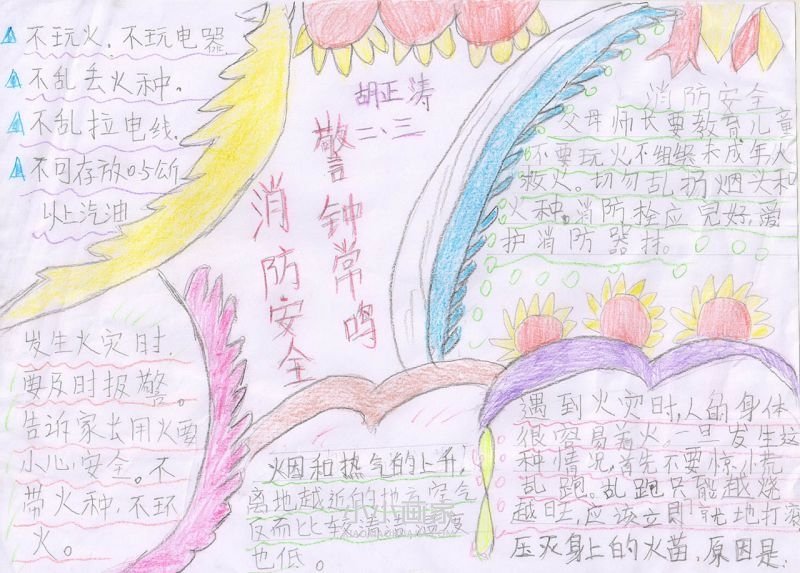 不玩火，不玩电器
不乱丢火种。
不乱拉电线．
不可存放0.5公斤
以上汽油
胡正涛
二、三
警钟常鸣
消防安全
消防安全
父母师长要教育儿童
不要玩火不组织未成年人
救火。切勿乱扔烟头和
火种。消防栓应完好，爱
护消防器材。
发生火灾时，
要及时报警。
告诉家长用火要
小心安全。不
带火种，不环
火。
烟和热气的上升，
离地越近的地方空气
反而比较清
也低。
遇到火灾时，人的身体
很容易着火，一旦发生这
种情况，首先不要惊慌
乱跑。乱跑只能越烧
越旺，应该立即就地打滚
压灭身上的火苗，原因是：
小小画家